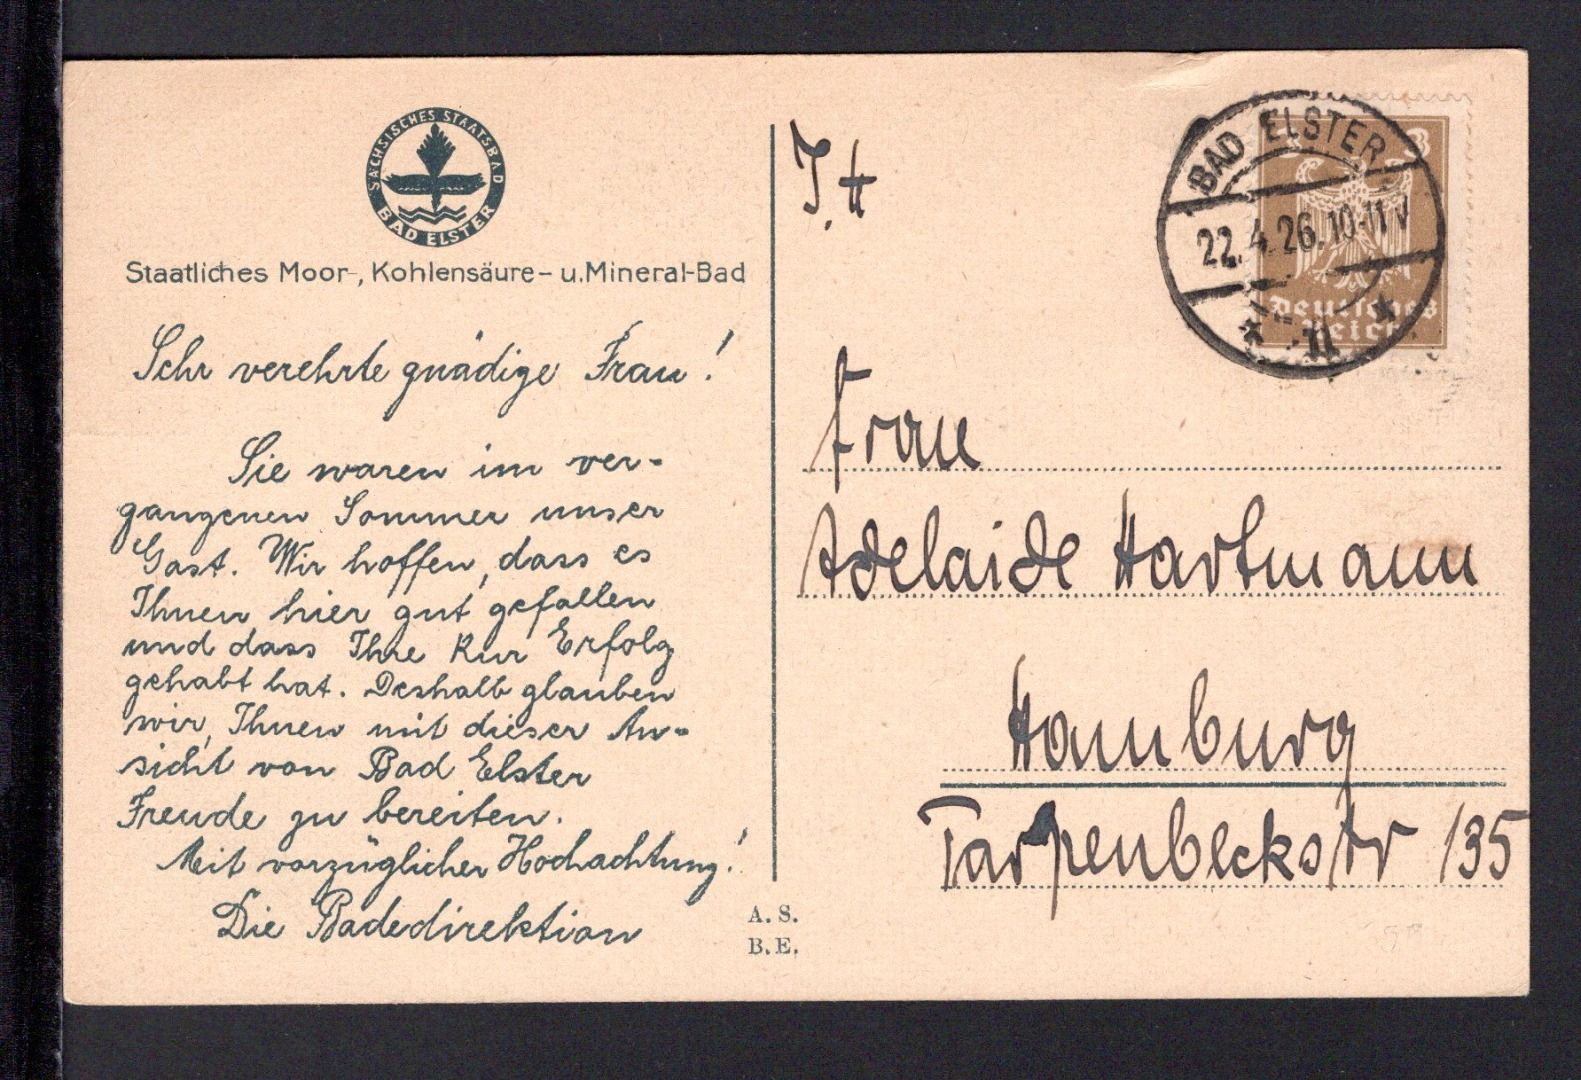 SÄCHSISCHES STAATSBAD
BAD ELSTER
Staatliches Moor-, Kohlensäure- u. Mineral-Bad
Sehr verehrte gnädige Frau!
Sie waren im ver-
gangenen Sommer unser
Gast. Wir hoffen, dass es
Ihnen hier gut gefallen
und dass Ihre Kur Erfolg
gehabt hat. Deshalb glauben
wir, Ihnen mit dieser An-
sicht von Bad Elster
Freude zu bereiten.
Mit vorzüglicher Hochachtung!
Die Badedirektion
A. S.
B. E.
BAD ELSTER
22.4.26.10-11V
3
Deutsches
Reich
Frau
Adelaide Hartmann
Hamburg
Tarpenbeckstr 135